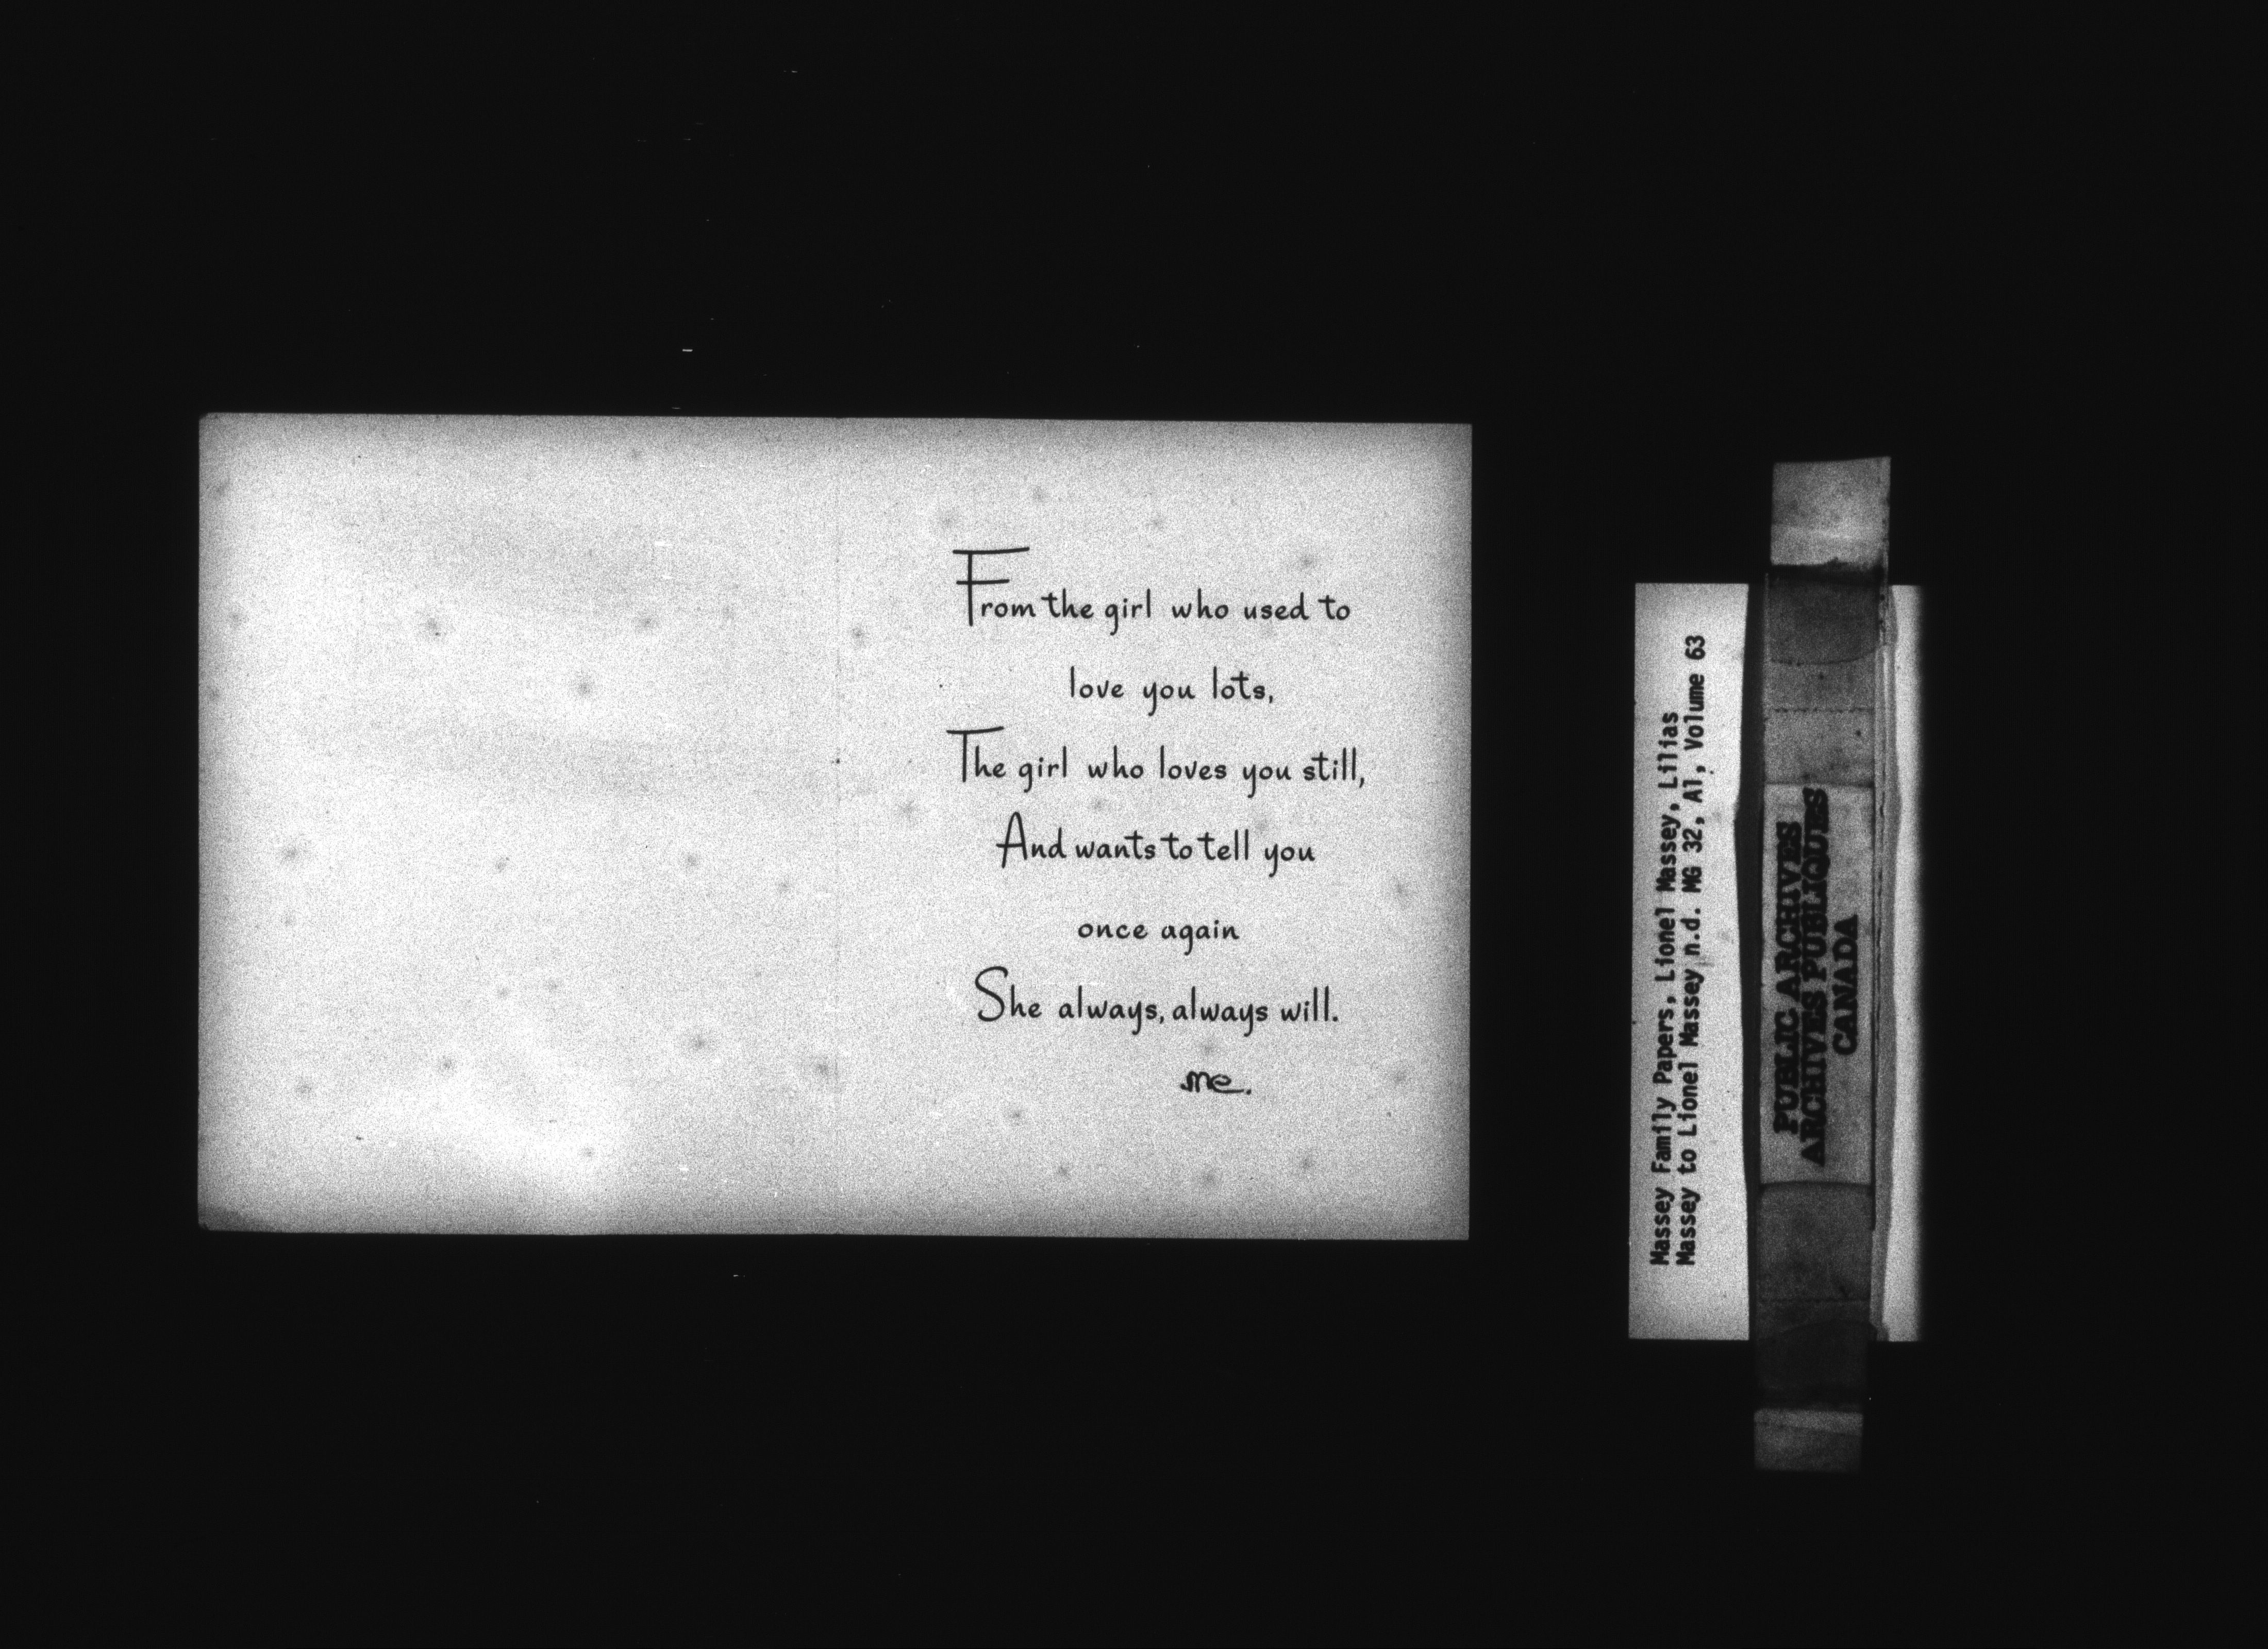 From the girl who used to
love you lots,
The girl who loves you still,
And wants to tell you
once again
She always, always will.
me.
Massey Family Papers, Lionel Massey, Lilias
Massey to Lionel Massey n.d. MG 32, A1, Volume 63
PUBLIC ARCHIVES
ARCHIVES PUBLIQUES
CANADA